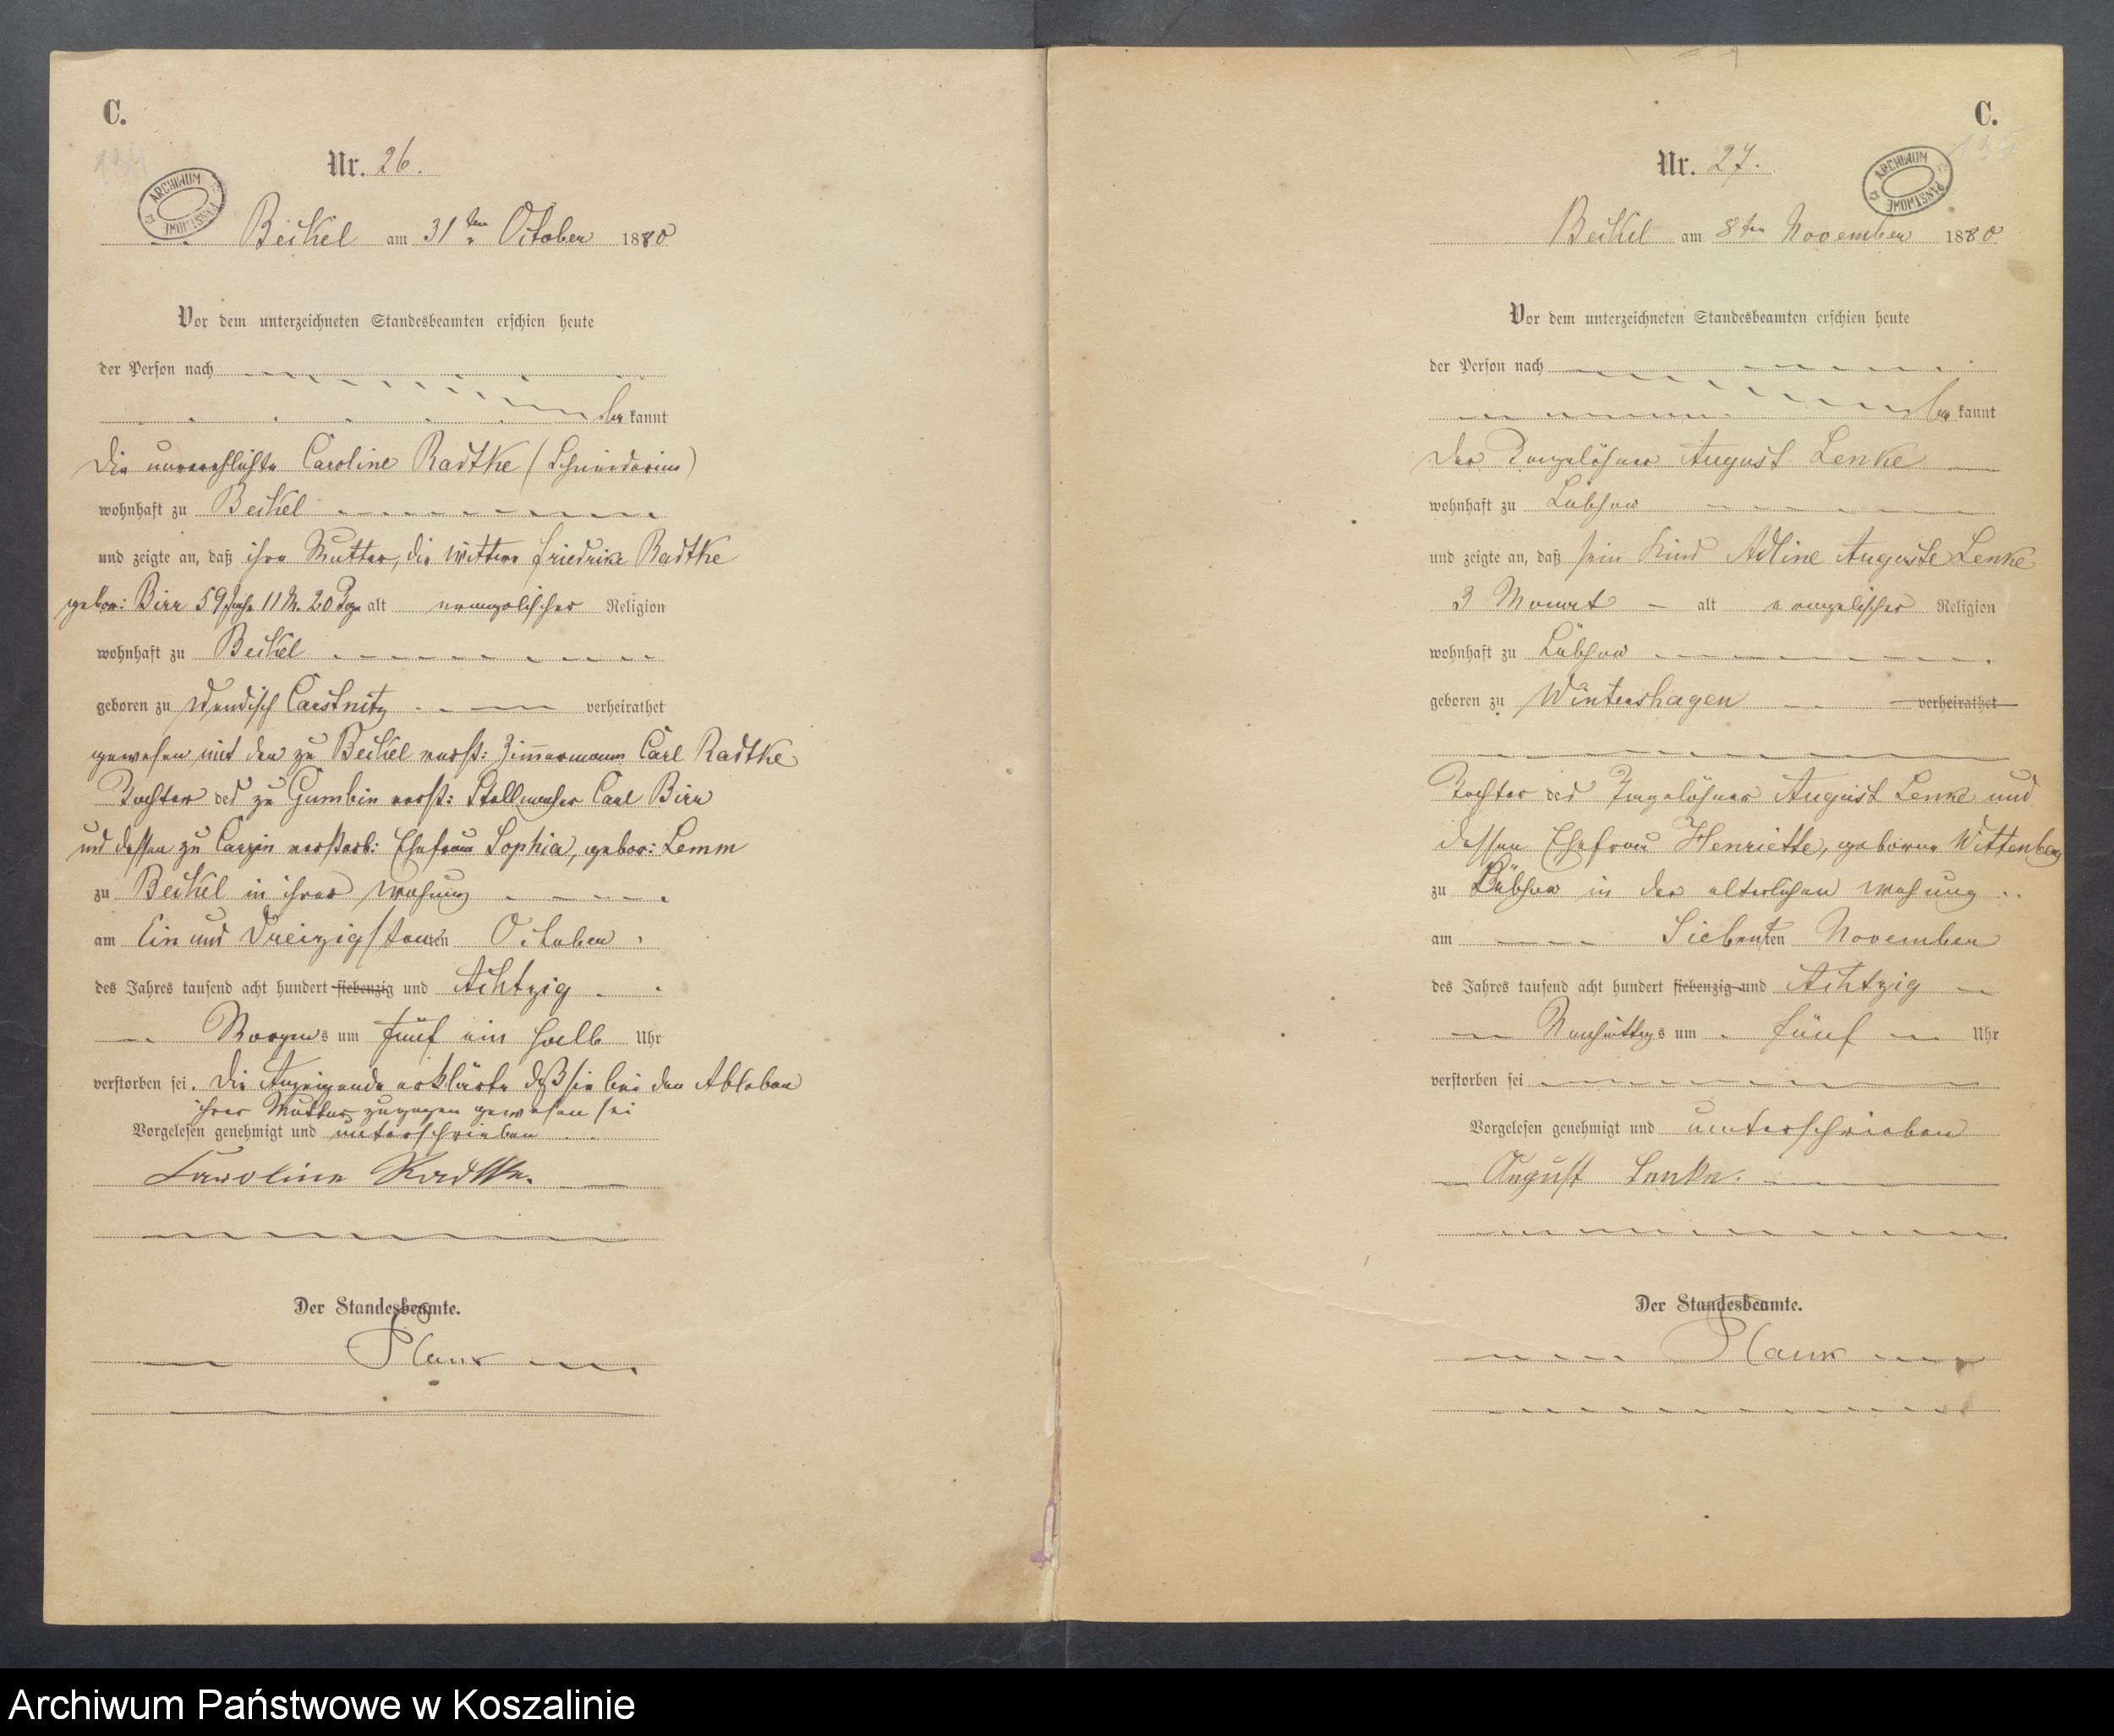 C.
Nr. 26.
ARCHIWUM PAŃSTWOWE
Beckel am 31ten October 1880
Vor dem unterzeichneten Standesbeamten erschien heute
der Person nach
be kannt
Die unverehelichte Caroline Radtke (Schneiderin)
wohnhaft zu Beckel
und zeigte an, daß ihre Mutter, die Wittwe Friedrike Radtke
gebor: Birr 59 Jahr 11 M. 20 Tage alt evangelischer Religion
wohnhaft zu Beckel
geboren zu Wendisch Carstnitz verheirathet
gewesen mit den zu Beckel verst: Zimmermann Carl Radtke
Tochter des zu Gumbin verst: Stellmacher Carl Birr
und dessen zu Carzin verstorb: Ehefrau Sophia, gebor: Lemm
zu Beckel in ihrer Wohnung
am Ein und Dreizigsten October
des Jahres tausend acht hundert siebenzig und Achtzig
Morgens um fünf ein halb Uhr
verstorben sei. Die Anzeigende erklärte daß sie bei den Ableben
ihrer Mutter zugegen gewesen sei
Vorgelesen genehmigt und unterschrieben
Caroline Radtke.
Der Standesbeamte.
Plank
C.
Nr. 27.
ARCHIWUM PAŃSTWOWE
Beckel am 8ten November 1880
Vor dem unterzeichneten Standesbeamten erschien heute
der Person nach
be kannt
Der Tagelöhner August Lenke
wohnhaft zu Lübzow
und zeigte an, daß sein Kind Adline Auguste Lenke
3 Monat alt evangelischer Religion
wohnhaft zu Lübzow
geboren zu Wintershagen verheirathet
Tochter des Tagelöhner August Lenke und
dessen Ehefrau Henriette, geborne Wittenberg
zu Lübzow in der elterlichen Wohnung
am Siebenten November
des Jahres tausend acht hundert siebenzig und Achtzig
Nachmittags um fünf Uhr
verstorben sei
Vorgelesen genehmigt und unterschrieben
August Lenke.
Der Standesbeamte.
Plank
Archiwum Państwowe w Koszalinie